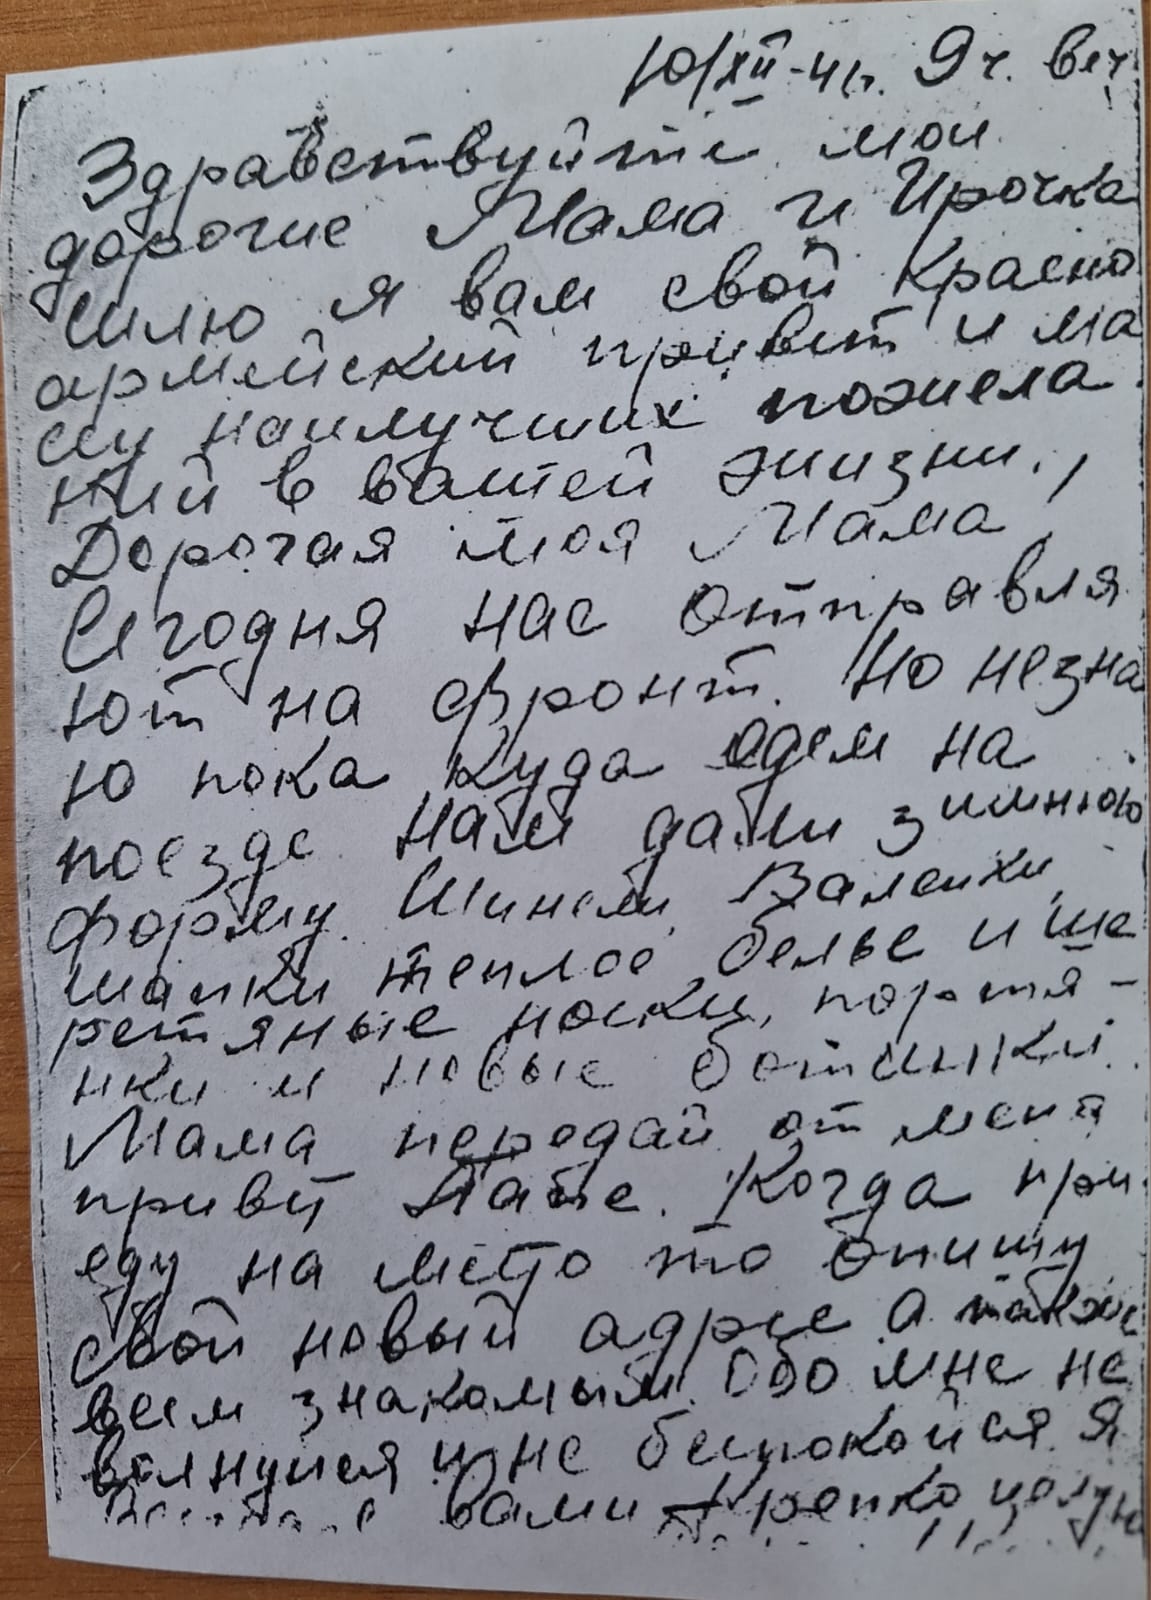 10/XII-41г. 9 ч. веч.
Здравствуйте мои
дорогие Мама и Ирочка
шлю я вам свой Красно
армейский привет и ма
ссу наилучших пожела
ний в вашей жизни.,
Дорогая моя Мама,
Сегодня нас отправля
ют на фронт. Но незна
ю пока куда едем на
поезде. Нам дали зимнюю
форму. Шинели, Валенки,
шапки теплое белье и ше
рстяные носки, портя-
нки и новые ботинки.
Мама передай от меня
привет Папе. Когда при
еду на место то опишу
свой новый адрес а также
всем знакомым. Обо мне не
волнуйся и не беспокойся Я
вами Крепко целую